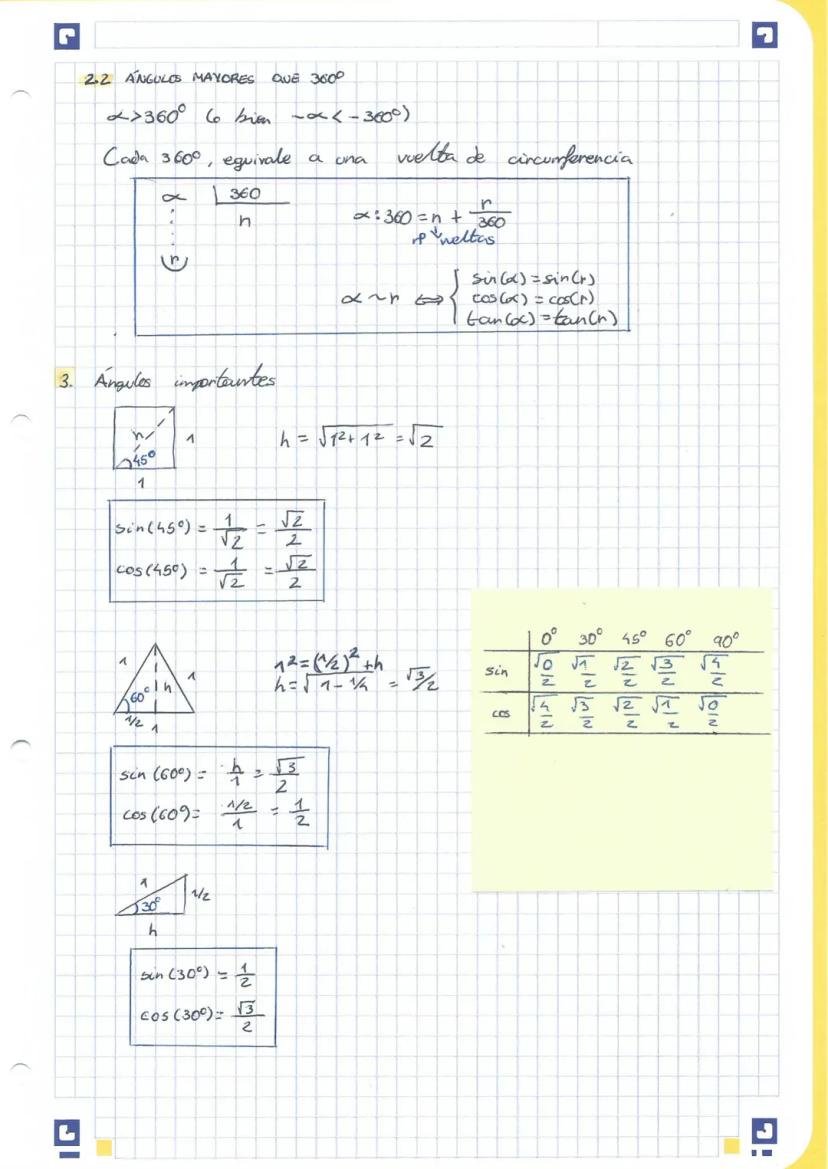 2.2 ÁNGULOS MAYORES QUE 360º
α>360º (o bien -α<-360º)
Cada 360º, equivale a una vuelta de circumferencia
α | 360
n
r
α:360 = n + r/360
nº vueltas
α ~ r ⇔ { sin(α) = sin(r)
cos(α) = cos(r)
tan(α) = tan(r)
3. Ángulos importantes
h
45º
1
1
h = √1²+1² = √2
sin(45º) = 1/√2 = √2/2
cos(45º) = 1/√2 = √2/2
1
1
60º
h
1/2
1
1² = (1/2)² + h
h = √1 - 1/4 = √3/2
sin(60º) = h/1 = √3/2
cos(60º) = 1/2/1 = 1/2
0º 30º 45º 60º 90º
sin √0/2 √1/2 √2/2 √3/2 √4/2
cos √4/2 √3/2 √2/2 √1/2 √0/2
1
30º
1/2
h
sin(30º) = 1/2
cos(30º) = √3/2